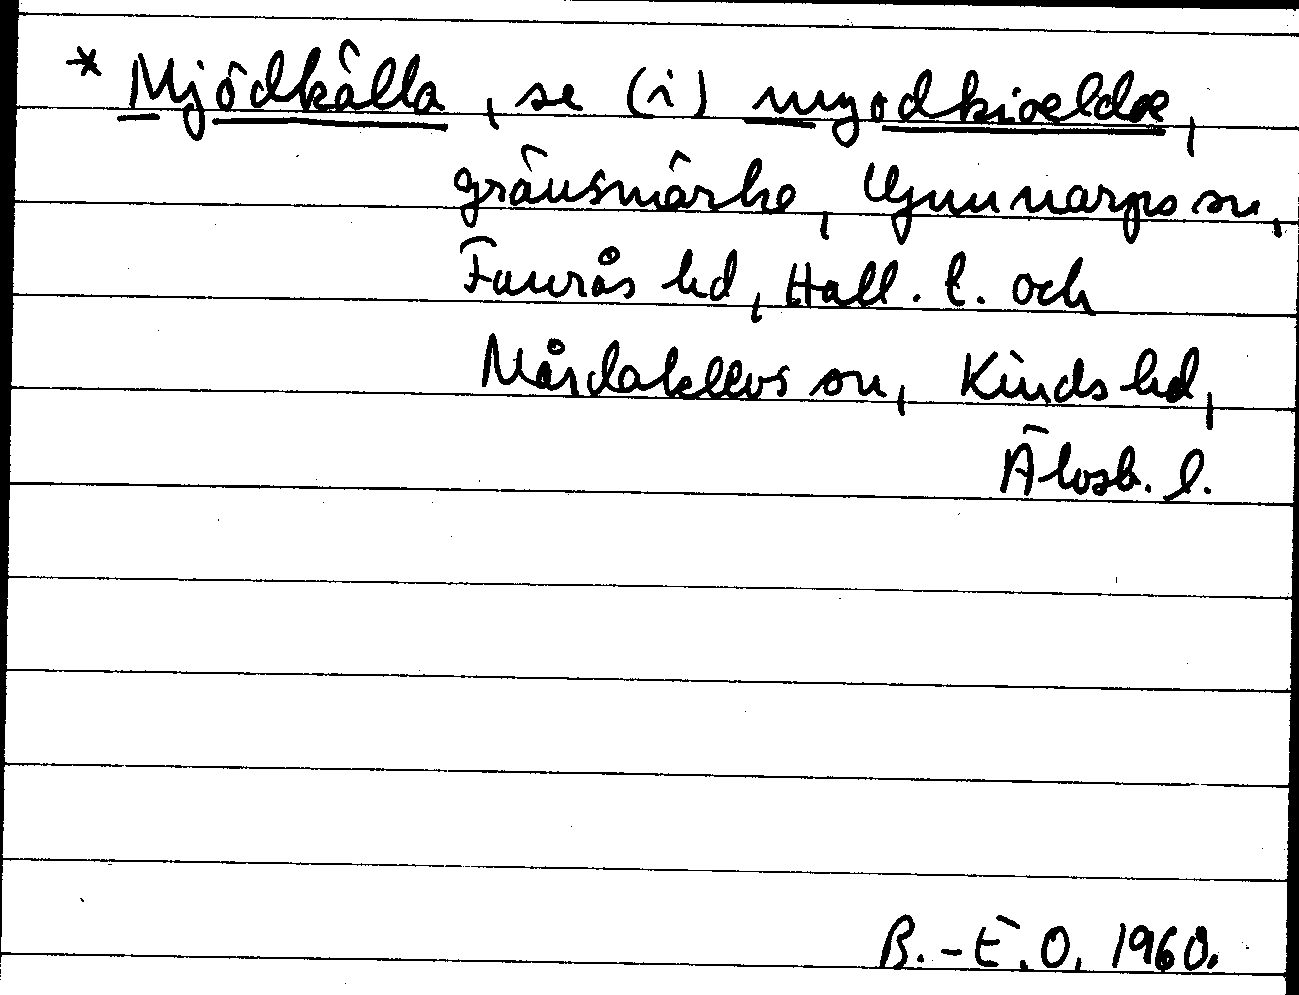 * Mjödkälla, se (i) myodkioeldoe,
gränsmärke, Gunnarps sn,
Faurås hd, Hall. l. och
Mårdaklevs sn, Kinds hd,
Älvsb. l.
B.-E. O. 1960.